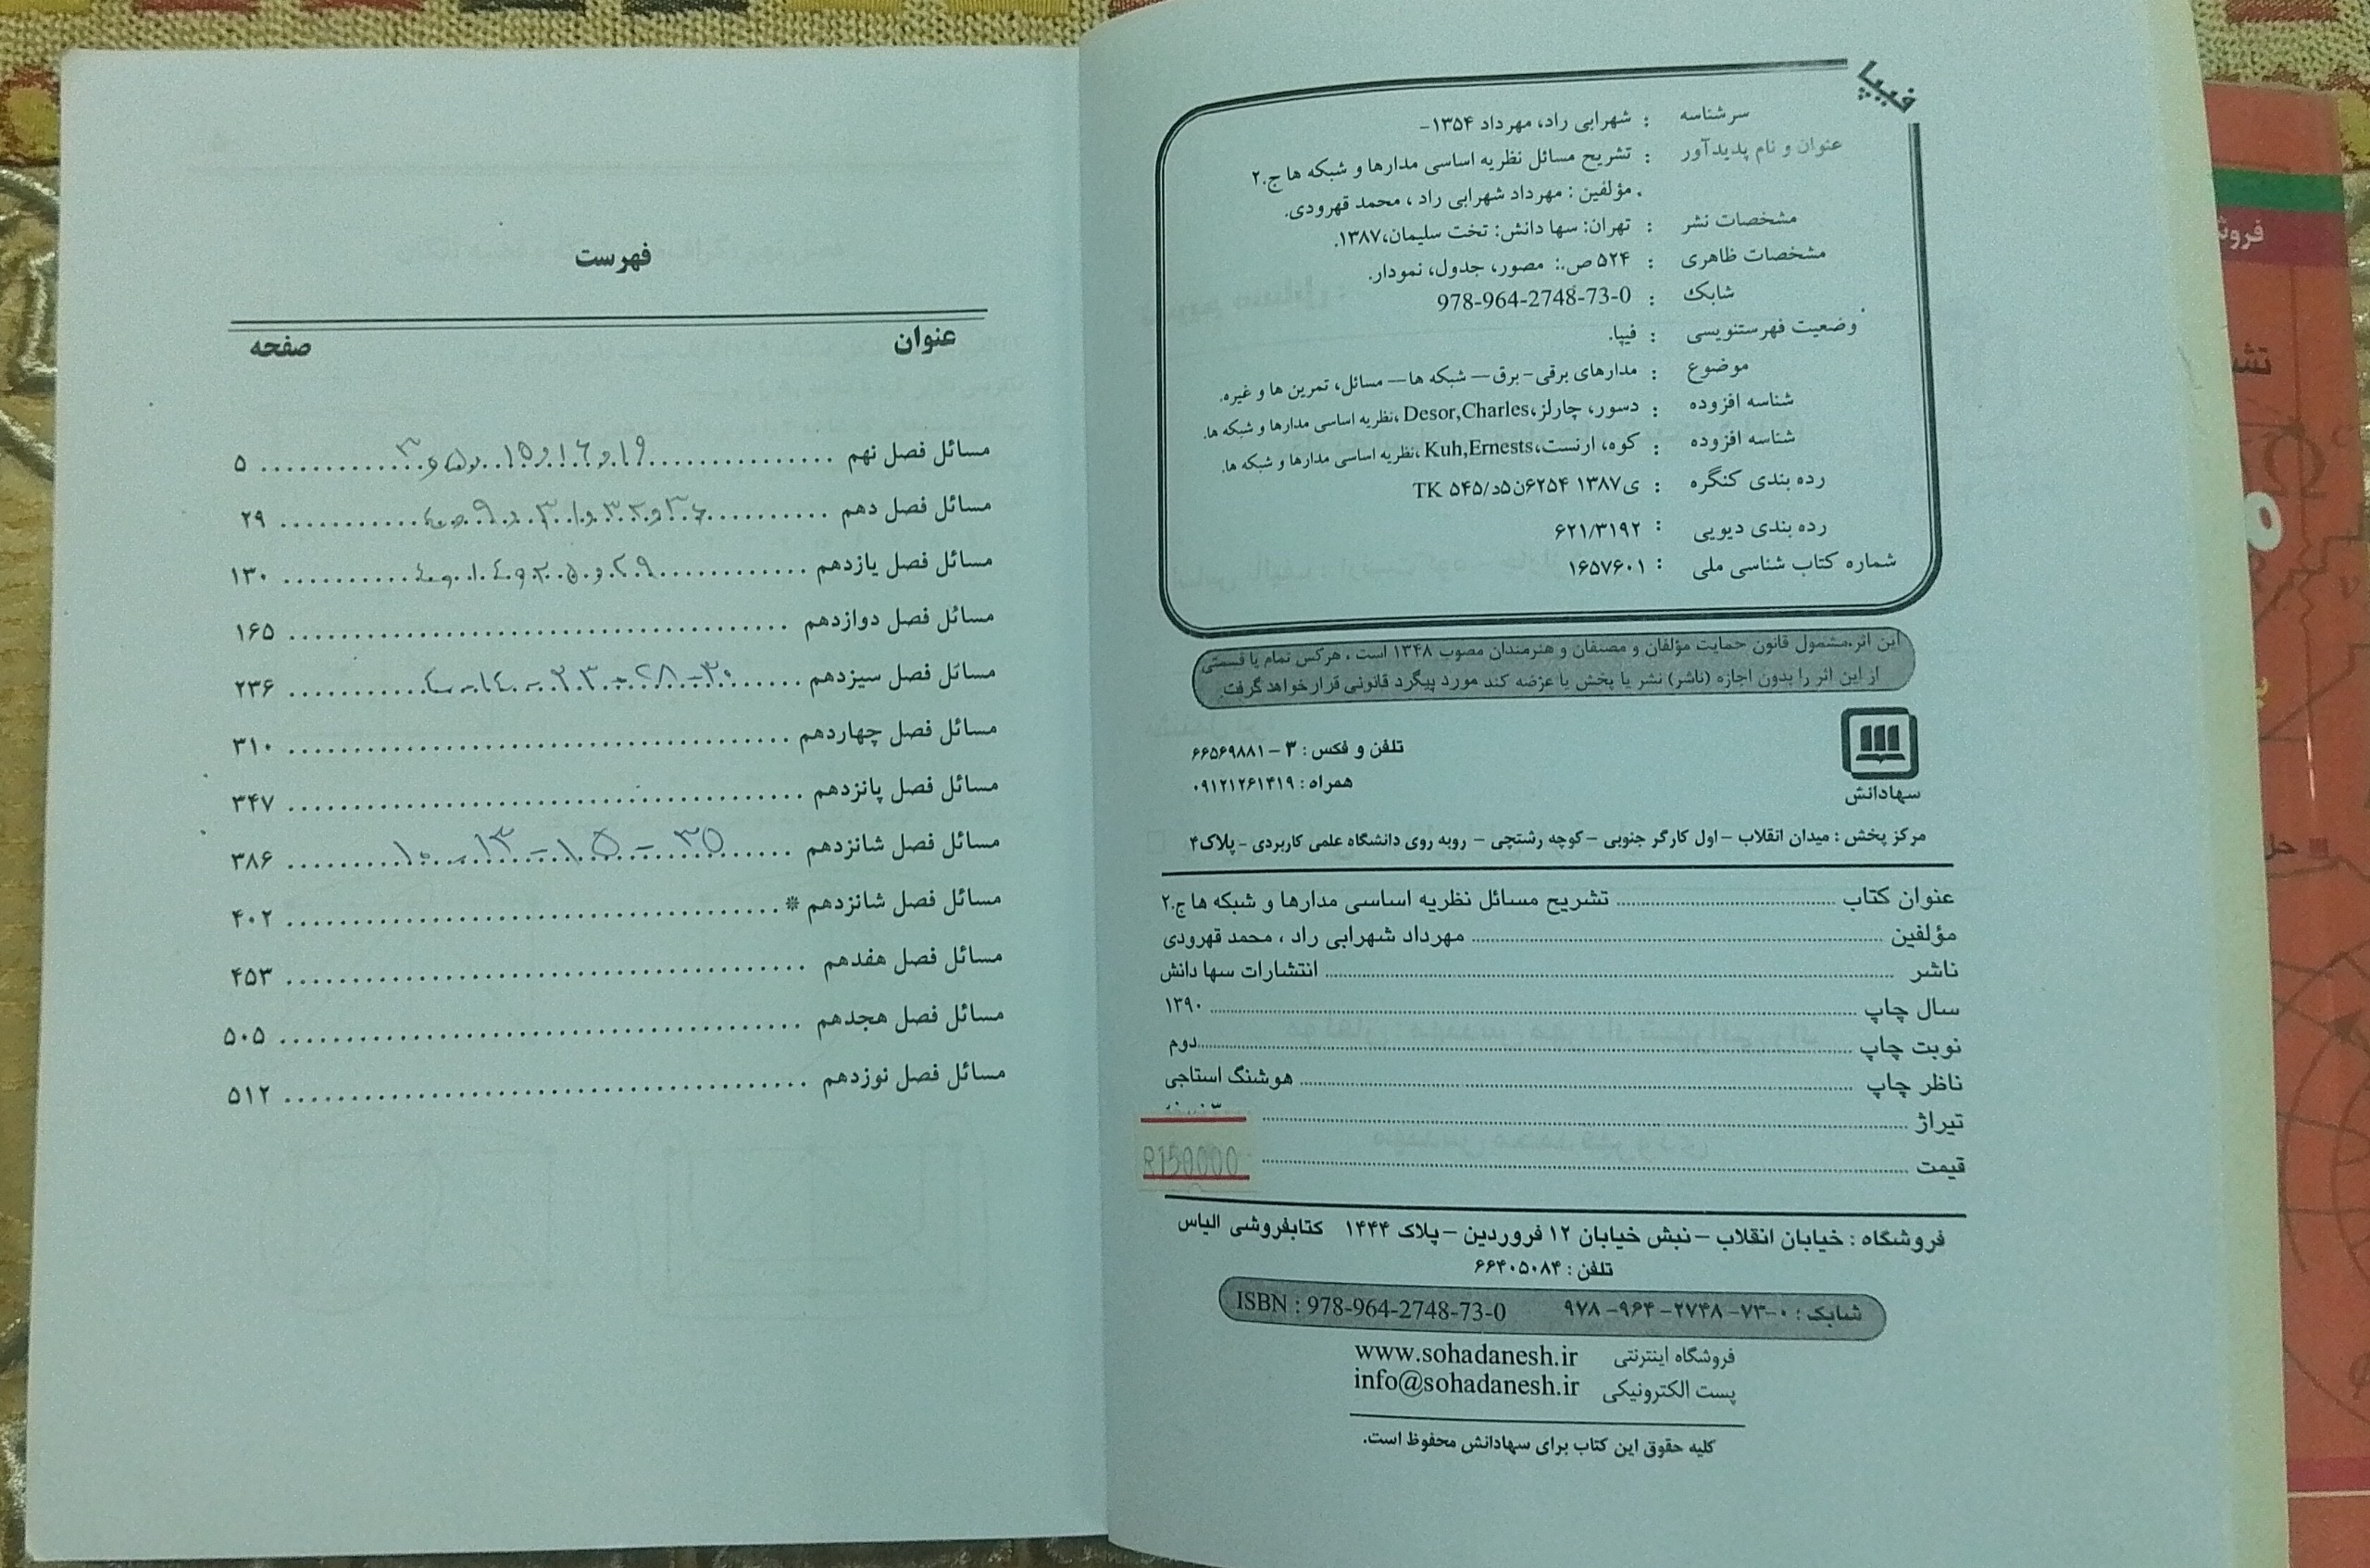 فیپا
سرشناسه : شهرابی راد، مهرداد ۱۳۵۴-
عنوان و نام پدیدآور : تشریح مسائل نظریه اساسی مدارها و شبکه ها ج.۲
مؤلفین : مهرداد شهرابی راد ، محمد قهرودی.
مشخصات نشر : تهران: سها دانش: تخت سلیمان،۱۳۸۷.
مشخصات ظاهری : ۵۲۴ ص.: مصور، جدول، نمودار.
شابک : 978-964-2748-73-0
وضعیت فهرستنویسی : فیپا.
موضوع : مدارهای برقی- برق— شبکه ها— مسائل، تمرین ها و غیره.
شناسه افزوده : دسور، چارلز،Desor,Charles ،نظریه اساسی مدارها و شبکه ها.
شناسه افزوده : کوه، ارنست،Kuh,Ernests ،نظریه اساسی مدارها و شبکه ها.
رده بندی کنگره : ی۱۳۸۷ ۶۲۵۴ن۵د/۵۴۵ TK
رده بندی دیویی : ۶۲۱/۳۱۹۲
شماره کتاب شناسی ملی : ۱۶۵۷۶۰۱
این اثر،مشمول قانون حمایت مؤلفان و مصنفان و هنرمندان مصوب ۱۳۴۸ است . هرکس تمام یا قسمتی
از این اثر را بدون اجازه (ناشر) نشر یا پخش یا عرضه کند مورد پیگرد قانونی قرار خواهد گرفت.
سهادانش
تلفن و فکس : ۳ - ۶۶۵۶۹۸۸۱
همراه : ۰۹۱۲۱۲۶۱۴۱۹
مرکز پخش : میدان انقلاب - اول کارگر جنوبی - کوچه رشتچی - روبه روی دانشگاه علمی کاربردی - پلاک۴
عنوان کتاب ........ تشریح مسائل نظریه اساسی مدارها و شبکه ها ج.۲
مؤلفین ........ مهرداد شهرابی راد ، محمد قهرودی
ناشر ........ انتشارات سها دانش
سال چاپ ........ ۱۳۹۰
نوبت چاپ ........ دوم
ناظر چاپ ........ هوشنگ استاجی
تیراژ ........
قیمت ........ R150000
فروشگاه : خیابان انقلاب - نبش خیابان ۱۲ فروردین - پلاک ۱۴۴۴ کتابفروشی الیاس
تلفن : ۶۶۴۰۵۰۸۴
شابک : ۰-۷۳- ۲۷۴۸ - ۹۶۴ - ۹۷۸ ISBN : 978-964-2748-73-0
فروشگاه اینترنتی www.sohadanesh.ir
پست الکترونیکی info@sohadanesh.ir
کلیه حقوق این کتاب برای سهادانش محفوظ است.
فهرست
عنوان صفحه
مسائل فصل نهم ........ ۳ و ۵ و ۱۵ و ۱۶ و ۱۹ ........ ۵
مسائل فصل دهم ........ ۲۹
مسائل فصل یازدهم ........ ۱۳۰
مسائل فصل دوازدهم ........ ۱۶۵
مسائل فصل سیزدهم ........ ۴ - ۱۴ - ۲۳ - ۲۸ - ۳۰ ........ ۲۳۶
مسائل فصل چهاردهم ........ ۳۱۰
مسائل فصل پانزدهم ........ ۳۴۷
مسائل فصل شانزدهم ........ ۱۰ - ۱۳ - ۱۵ - ۳۵ ........ ۳۸۶
مسائل فصل شانزدهم * ........ ۴۰۲
مسائل فصل هفدهم ........ ۴۵۳
مسائل فصل هجدهم ........ ۵۰۵
مسائل فصل نوزدهم ........ ۵۱۲